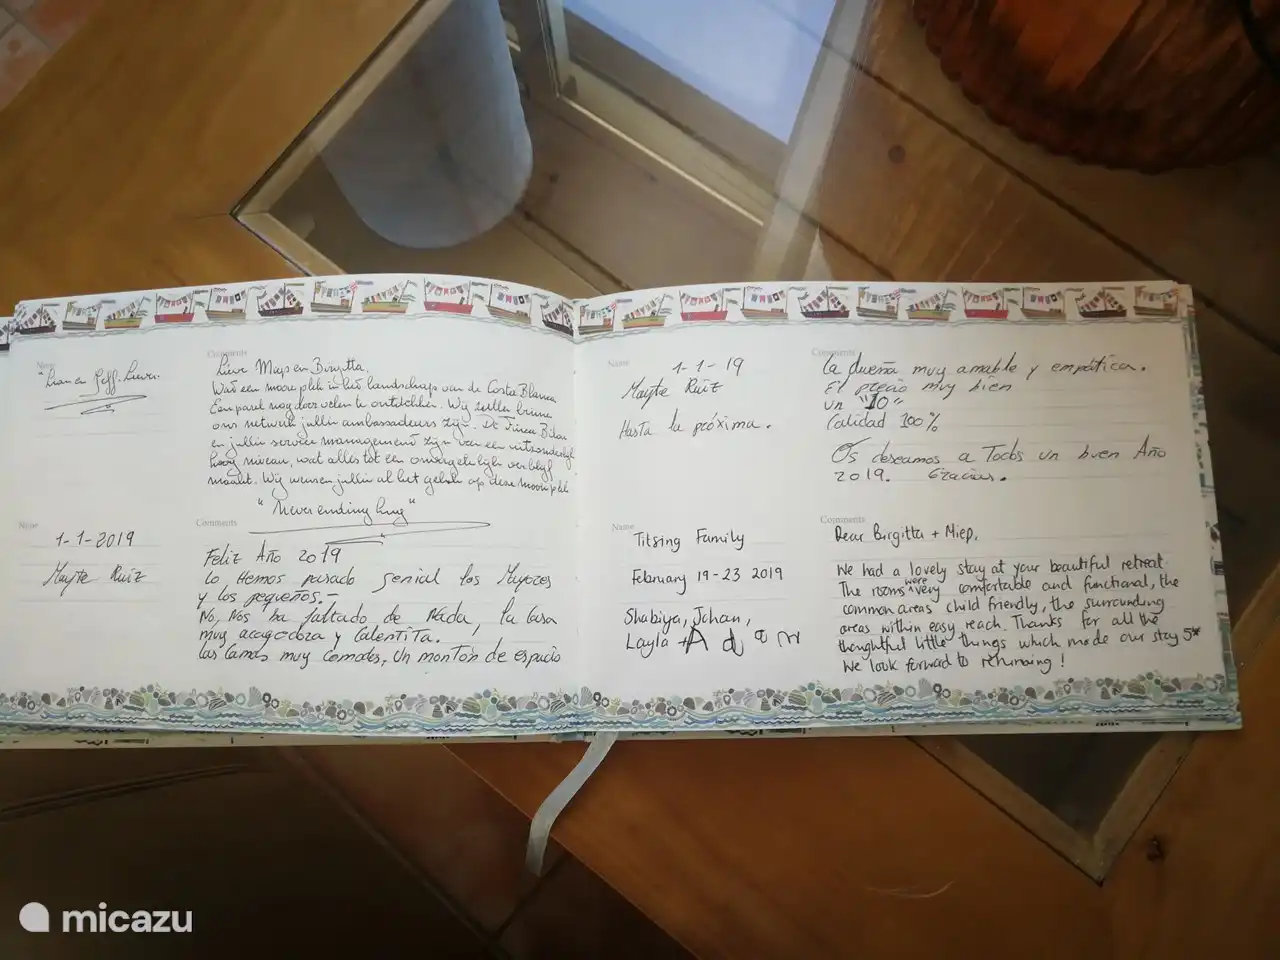 Name
Comments
Lieve Miep en Birgitta.
Wat een mooie plek in het landschap van de Costa Blanca
Een parel nog door velen te ontdekken. Wij zullen binnen
ons netwerk jullie ambassadeurs zijn. De Finca
en jullie service management zijn van een uitzonderlijk
hoog niveau, wat alles tot een onvergetelijk verblijf
maakt. Wij wensen jullie al het geluk op deze mooie plek
"Never ending
Name
1-1-2019
Mayte Ruiz
Comments
Feliz Año 2019
Lo, Hemos pasado genial los Mayores
y los pequeños.-
No, Nos ha faltado de Nada, la Casa
muy acogedora y Calentita.
Las Camas muy comodas, Un montón de espacio
Name
1-1-19
Mayte Ruiz
Hasta la próxima.
Comments
La dueña muy amable y empática.
El precio muy bien
un "10"
Calidad 100%
Os deseamos a Todos un buen Año
2019. Gracias.
Name
Titsing Family
February 19-23 2019
Shabiya, Johan,
Layla + Adam
Comments
Dear Birgitta + Miep,
We had a lovely stay at your beautiful retreat.
The rooms were very comfortable and functional, the
common areas child friendly, the surrounding
areas within easy reach. Thanks for all the
thoughtful little things which made our stay 5*
We look forward to returning!
micazu